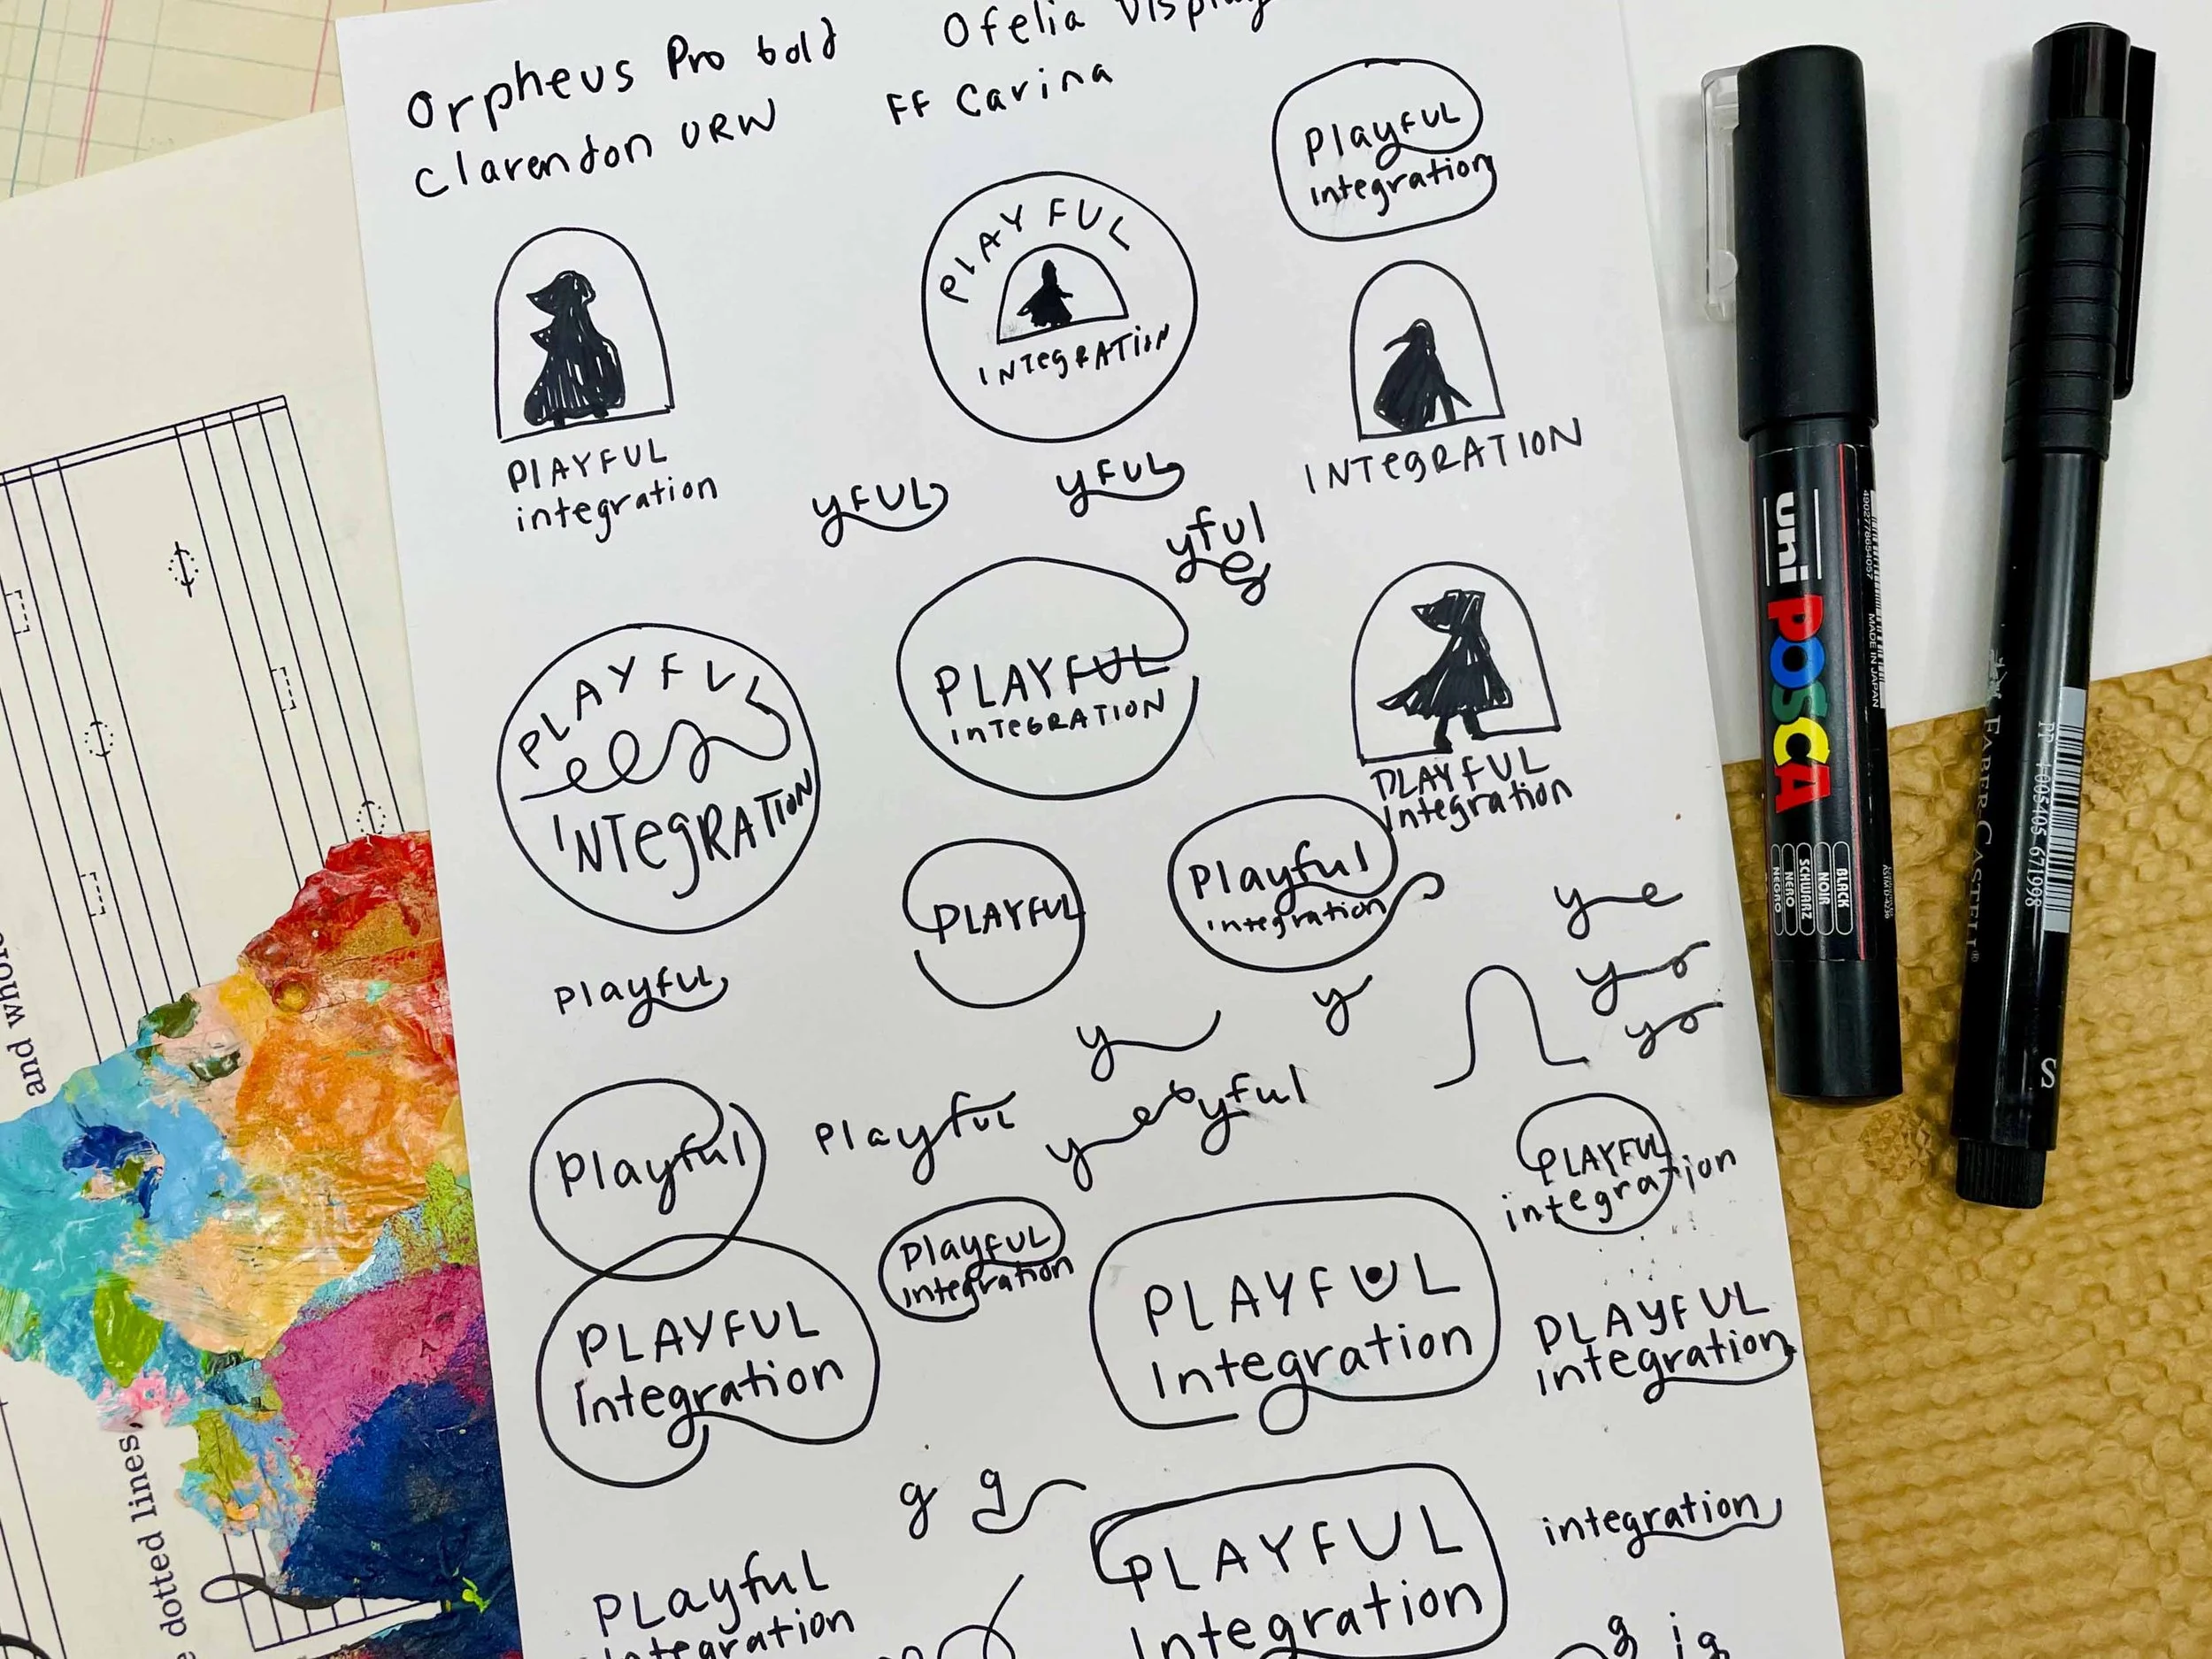 Orpheus Pro bold
Ofelia Display
Clarendon URW
FF Carina
Playful
integration
PLAYFUL
INTEgRATiON
PlAYFUL
integration
INTEgRATION
yFUL
yFUL
yful
PLAYFUL
INTEgRATION
PLAYFUL
iNTEGRATION
PLAYFUL
integration
PLAYFUL
Playful
integration
playful
y
y
y
y
y
Playful
Playful
y
yful
PLAYFUL
integration
Playful
integration
PLAYFUL
integration
PLAYFUL
Integration
PLAYFUL
integration
g g
integration
PLayfuL
integration
PLAYFUL
Integration
g ig
uni POSCA
BLACK
NOIR
SCHWARZ
NERO
NEGRO
MADE IN JAPAN
FABER-CASTELL
S
and whole
dotted lines,